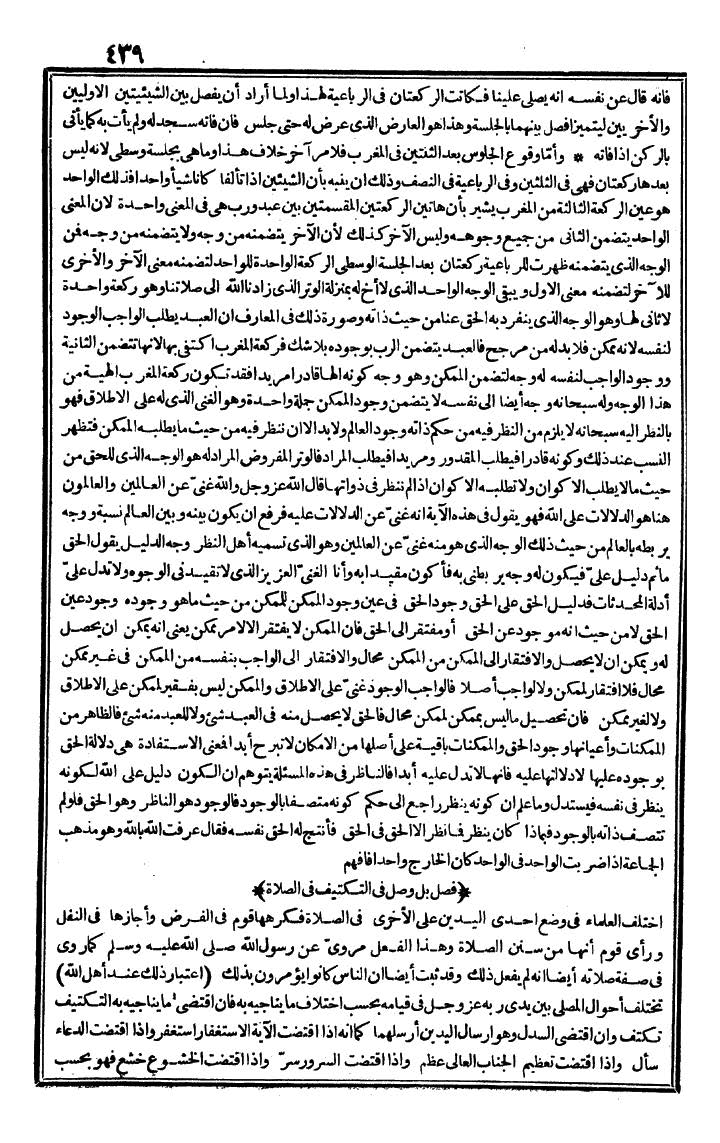 ٤٣٩
فانه قال عن نفسه انه يصلى علينا فكانت الركعتان فى الرباعية لهذا ولما أراد أن يفصل بين الشيئيتين الاوليين
والأخريين ليتميزا فصل بينهما بالجلسة وهذا هو العارض الذى عرض له حتى جلس فان فاته سجد له ولم يأت به كما يأتى
بالركن اذا فاته * وأما وقوع الجلوس بعد الثنتين فى المغرب فلامر آخر خلاف هذا وما هى بجلسة وسطى لانه ليس
بعدها ركعتان فهى فى الثلثين وفى الرباعية فى النصف وذلك ان ينبه بأن الشيئين اذا تألفا كانا شيأ واحدا فذلك الواحد
هو عين الركعة الثالثة من المغرب يشير بأن هاتين الركعتين المقسمتين بين عبد ورب هى فى المعنى واحدة لان المعنى
الواحد يتضمن الثانى من جميع وجوهه وليس الآخر كذلك لأن الآخر يتضمنه من وجه ولا يتضمنه من وجه فن
الوجه الذى يتضمنه ظهرت للرباعية ركعتان بعد الجلسة الوسطى الركعة الواحدة للواحد لتضمنه معنى الآخر والأخرى
للآخر لتضمنه معنى الاول ويبقى الوجه الواحد الذى لا أخ له بمنزلة الوتر الذى زادنا الله الى صلاتنا وهو ركعة واحدة
لا ثانى لها وهو الوجه الذى ينفرد به الحق عنا من حيث ذاته وصورة ذلك فى المعارف ان العبد يطلب الواجب الوجود
لنفسه لانه ممكن فلابد له من مرجح فالعبد يتضمن الرب بوجوده بلا شك فركعة المغرب اكتفى بها لانها تتضمن الثانية
ووجود الواجب لنفسه له وجه لتضمن الممكن وهو وجه كونه الها قادرا مريدا فقد تكون ركعة المغرب الهية من
هذا الوجه وله سبحانه وجه أيضا الى نفسه لا يتضمن وجود الممكن جملة واحدة وهو الغنى الذى له على الاطلاق فهو
بالنظر اليه سبحانه لا يلزم من النظر فيه من حكم ذاته وجود العالم ولابد الا ان ننظر فيه من حيث ما يطلبه الممكن فتظهر
النسب عند ذلك وكونه قادرا فيطلب المقدور ومريدا فيطلب المراد فالوتر المفروض المراد له هو الوجه الذى للحق من
حيث ما لا يطلب الاكوان ولا تطلبه الاكوان اذا لم ننظر فى ذواتها قال الله عز وجل والله غنىّ عن العالمين والعالمون
هنا هو الدلالات على الله فهو يقول فى هذه الآية انه غنىّ عن الدلالات عليه فرفع ان يكون بينه وبين العالم نسبة ووجه
يربطه بالعالم من حيث ذلك الوجه الذى هو منه غنىّ عن العالمين وهو الذى تسميه أهل النظر وجه الدليل يقول الحق
ما ثم دليل علىّ فيكون له وجه يربطنى به فأكون مقيدا به وأنا الغنىّ العزيز الذى لا تقيدنى الوجوه ولا تدل علىّ
أدلة المحدثات فدليل الحق على الحق وجود الحق فى عين وجود الممكن للممكن من حيث ما هو وجوده وجود عين
الحق لا من حيث انه موجود عن الحق أو مفتقر الى الحق فان الممكن لا يفتقر الا لامر ممكن يعنى انه يمكن ان يحصل
له ويمكن ان لا يحصل والافتقار الى الممكن من الممكن محال والافتقار الى الواجب بنفسه من الممكن فى غير ممكن
محال فلا افتقار لممكن ولا لواجب أصلا فالواجب الوجود غنىّ على الاطلاق والممكن ليس بفقير لممكن على الاطلاق
ولا لغير ممكن فان تحصيل ما ليس بممكن لممكن محال فالحق لا يحصل منه فى العبد شئ ولا للعبد منه شئ فالظاهر من
الممكنات وأعيانها وجود الحق والممكنات باقية على أصلها من الامكان لا تبرح أبدا فمعنى الاستفادة هى دلالة الحق
بوجوده عليها لا دلالتها عليه فانها لا تدل عليه أبدا فالناظر فى هذه المسئلة يتوهم ان الكون دليل على الله لكونه
ينظر فى نفسه فيستدل وما علم ان كونه ينظر راجع الى حكم كونه متصفا بالوجود فالوجود هو الناظر وهو الحق فلو لم
تتصف ذاته بالوجود فبماذا كان ينظر فانظر الا الحق فى الحق فأنتج له الحق نفسه فقال عرفت الله بالله وهو مذهب
الجماعة اذا ضربت الواحد فى الواحد كان الخارج واحدا فافهم
﴿فصل بل وصل فى التكتيف فى الصلاة﴾
اختلف العلماء فى وضع احدى اليدين على الأخرى فى الصلاة فكرهها قوم فى الفرض وأجازها فى النفل
ورأى قوم أنها من سنن الصلاة وهذا الفعل مروىّ عن رسول الله صلى الله عليه وسلم كما روى
فى صفة صلاته أيضا انه لم يفعل ذلك وقد ثبت أيضا ان الناس كانوا يؤمرون بذلك (اعتبار ذلك عند أهل الله)
تختلف أحوال المصلى بين يدى ربه عز وجل فى قيامه بحسب اختلاف ما يناجيه به فان اقتضى ما يناجيه به التكتيف
تكتف وان اقتضى السدل وهو ارسال اليدين أرسلهما كما انه اذا اقتضت الآية الاستغفار استغفر واذا اقتضت الدعاء
سأل واذا اقتضت تعظيم الجناب العالى عظم واذا اقتضت السرور سرّ واذا اقتضت الخشوع خشع فهو بحسب